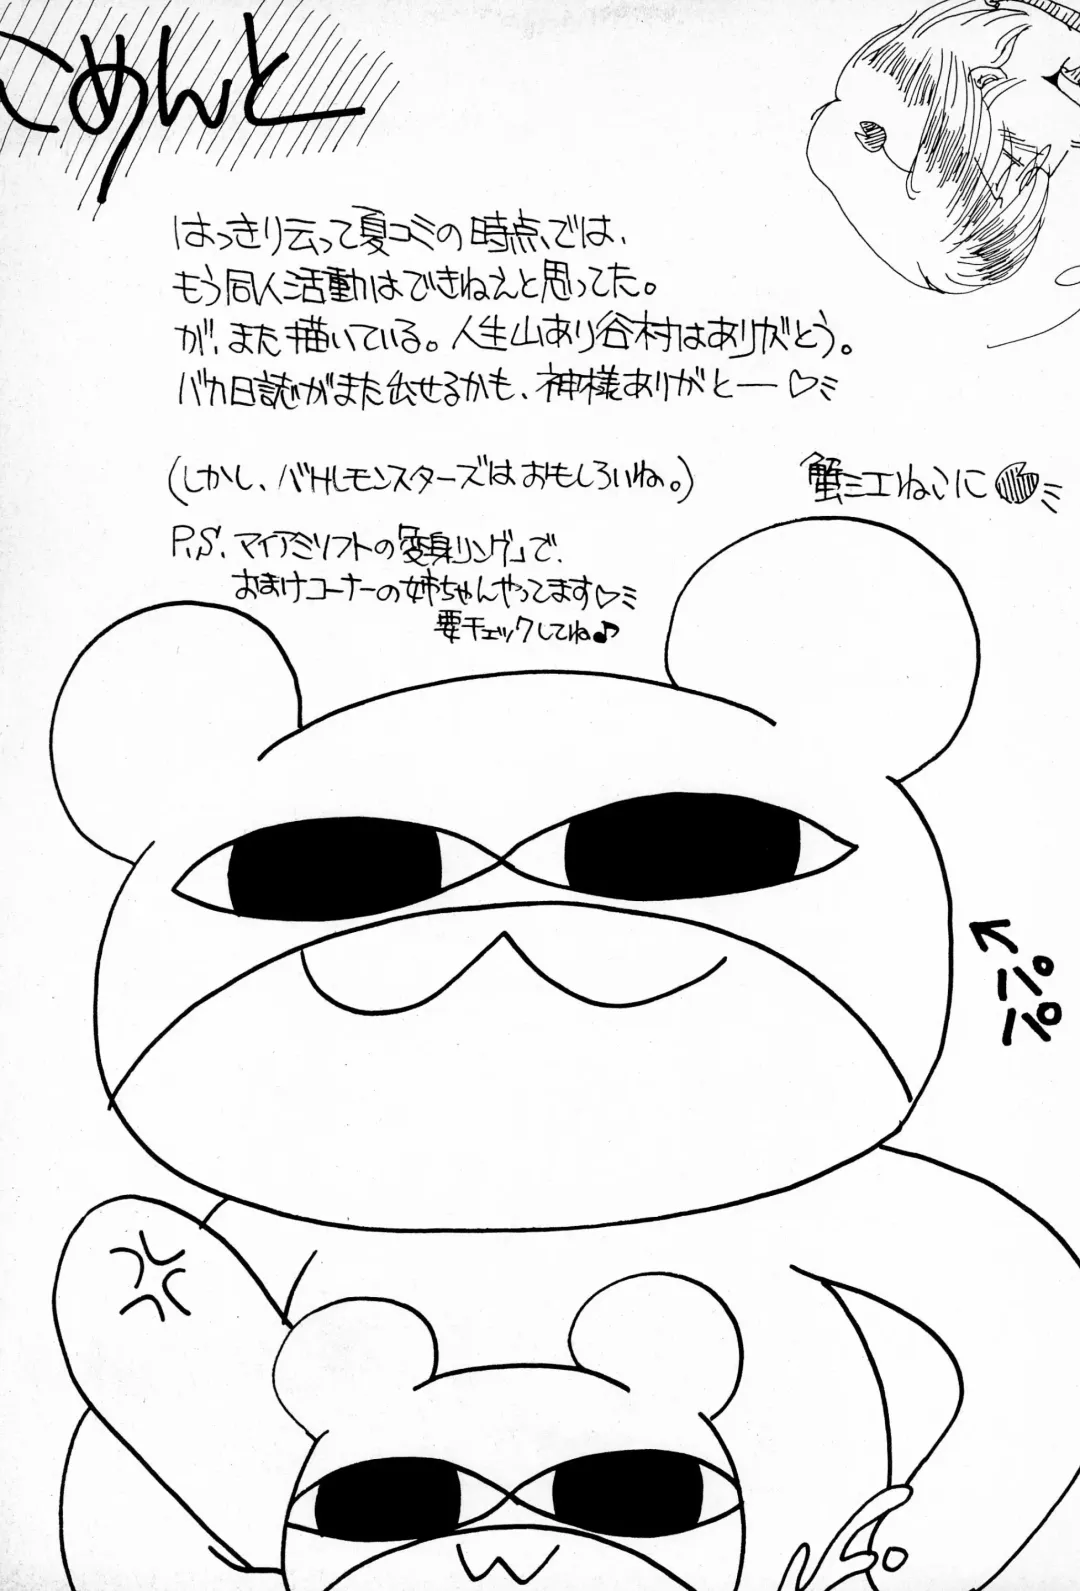 こめんと
はっきり云って夏コミの時点では、
もう同人活動はできねえと思ってた。
が、また描いている。人生山あり谷村はありがとう。
バカ日誌がまた出せるかも、神様ありがとー♡ミ
(しかし、バトルモンスターズはおもしろいね。)
蟹ミエねこに
P.S. マイアミソフトの『変身リング』で、
おまけコーナーの姉ちゃんやってます♡ミ
要チェックしてね♪
←パパ